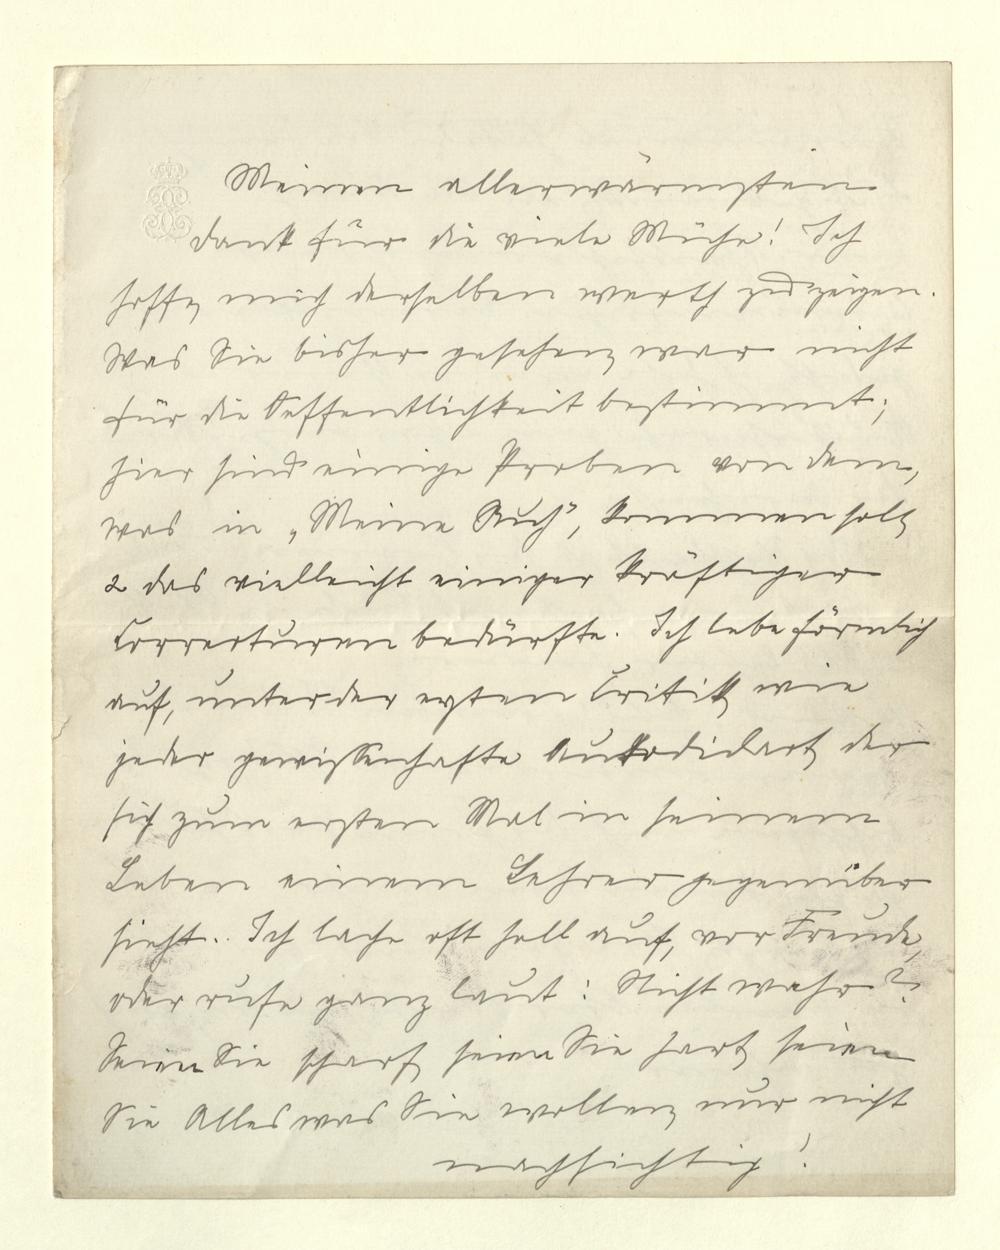 Meinen allerwärmsten
Dank für die viele Mühe! Ich
hoffe mich derselben werth zu zeigen.
Was Sie bisher gesehen, war nicht
für die Oeffentlichkeit bestimmt;
hier sind einige Proben von dem,
was in „Meine Ruh", kommen soll,
& das vielleicht einiger kräftiger
Correcturen bedürfte. Ich lebe förmlich
auf, unter der ersten Critik, wie
jeder gewissenhafte Autodidact, der
sich zum ersten Mal in seinem
Leben einem Lehrer gegenüber
sieht.. Ich lache oft hell auf, vor Freude,
oder rufe ganz laut: Nicht wahr?
Seien Sie scharf, seien Sie hart, seien
Sie Alles was Sie wollen, nur nicht
nachsichtig!